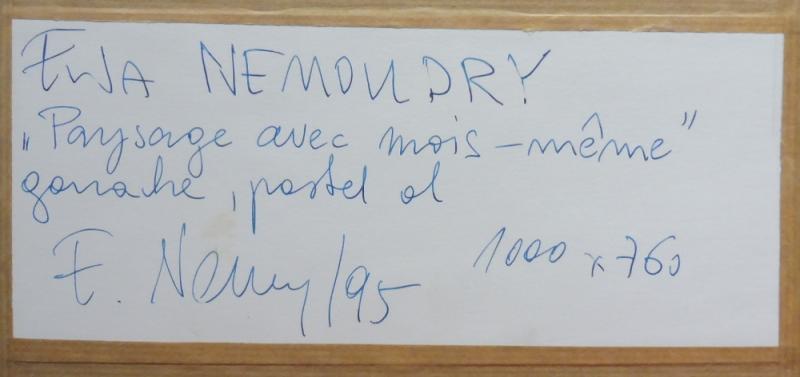 EWA NEMOUDRY
„Paysage avec mois-même”
gouache, pastel ol
E. Nemry/95 1000 x 760